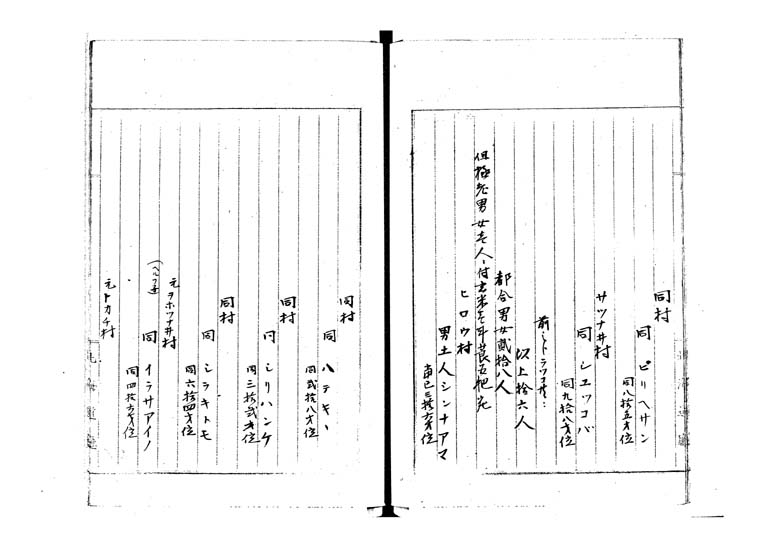 同村
同 ピリヘサン
同八拾五才位
サツナ井村
同 シユツコバ
同九拾八才位
以上拾六人
都合男女弐拾八人
但極老男女壱人ニ付玄米壱斗莨五把宛
ヒロウ村
男土人シンナアマ
当巳三拾六才位
同村
同 ハテキ
同弐拾八才位
同村
同 シリハンケ
同三拾弐才位
同村
同 シラキトモ
同六拾四才位
元ヲホツナ井村
同 イラサアイノ
同四拾六才位
元トカチ村